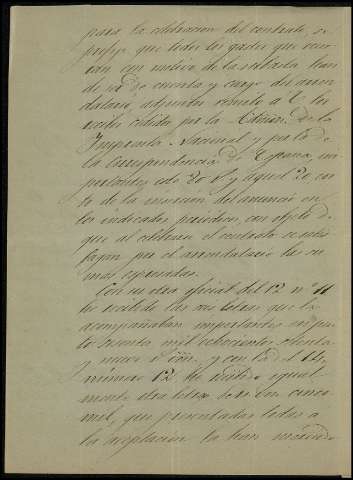 para la celebracion del contrato, se
prefija que todos los gastos que ocur
ran con motivo de la subasta han
de ser de cuenta y cargo del arren
datario, adjuntos remito a V. los
recibos espedidos por la Admon. de la
Imprenta Nacional y por la de
la Correspondencia de España, im
portantes este 30 y aquel 20 
de la insercion del anuncio en
los indicados periodicos, con objeto de
que al celebrarse el contrato se satis
fagan por el arrendatario las su
mas espresadas.
Con su oficial del 12 nº 11
he recibido las letras que la
acompañaban importantes 
mil ochocientos ochenta
y nueve y con la del 14
número 12 he recibido igual
mente otra letra de cinco
mil, que presentadas todas a
la aceptacion la han merecido